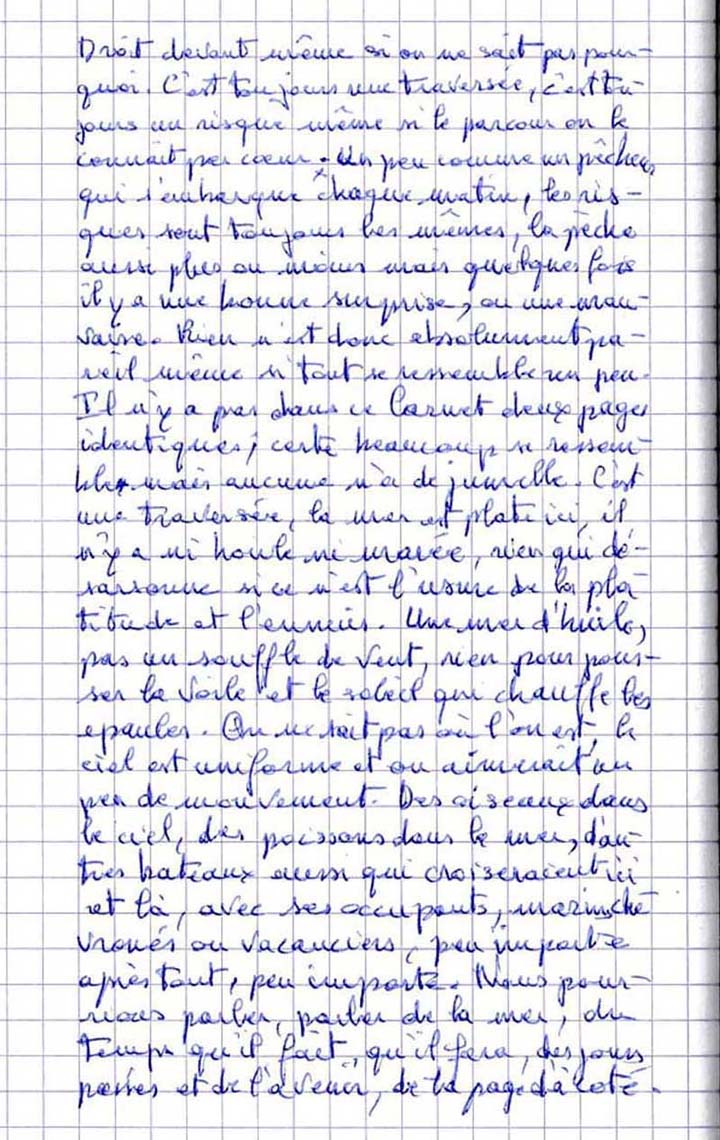 Droit devant même si on ne sait pas pour-
quoi. C'est toujours une traversée, c'est tou-
jours un risque même si le parcour on le
connait par coeur. Un peu comme un pêcheur
qui s'embarque chaque matin, les ris-
ques sont toujours les mêmes, la pèche
aussi plus ou moins mais quelques fois
il y a une bonne surprise, ou une mau-
vaise. Rien n'est donc absolument pa-
reil même si tout se ressemble un peu.
Il n'y a pas dans ce Carnet deux pages
identiques; certe beaucoup se ressem-
ble mais aucune n'a de jumelle. C'est
une traversée, la mer est plate ici, il
n'y a ni houle ni marée, rien qui dé-
sarsonne si ce n'est l'usure de la pla-
titude et l'ennuis. Une mer d'huile,
pas un souffle de vent, rien pour pous-
ser la voile et le soleil qui chauffe les
epaules. On ne sait pas où l'on est, le
ciel est uniforme et on aimerait un
peu de mouvement. Des oiseaux dans
le ciel, des poissons dans la mer, d'au-
tres bateaux aussi qui croiseraient ici
et là, avec ses occupants, marins che-
vronés ou vacanciers, peu importe
après tout, peu importe. Nous pour-
rions parler, parler de la mer, du
temps qu'il fait, qu'il fera, des jours
passés et de l'avenir, de la page d'à coté.